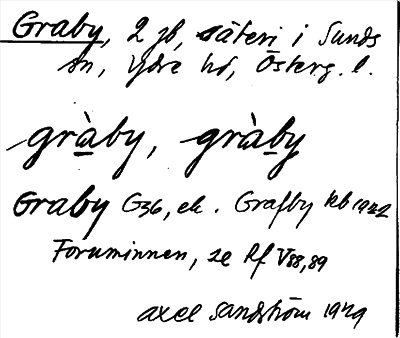 Graby, 2 gb, säteri i Sunds
sn, Ydre hd, Österg. l.
gràby, gràby
Graby G36, ek. Grafby kb 1942
Fornminnen, se Rf V88,89
Axel Sandström 1949